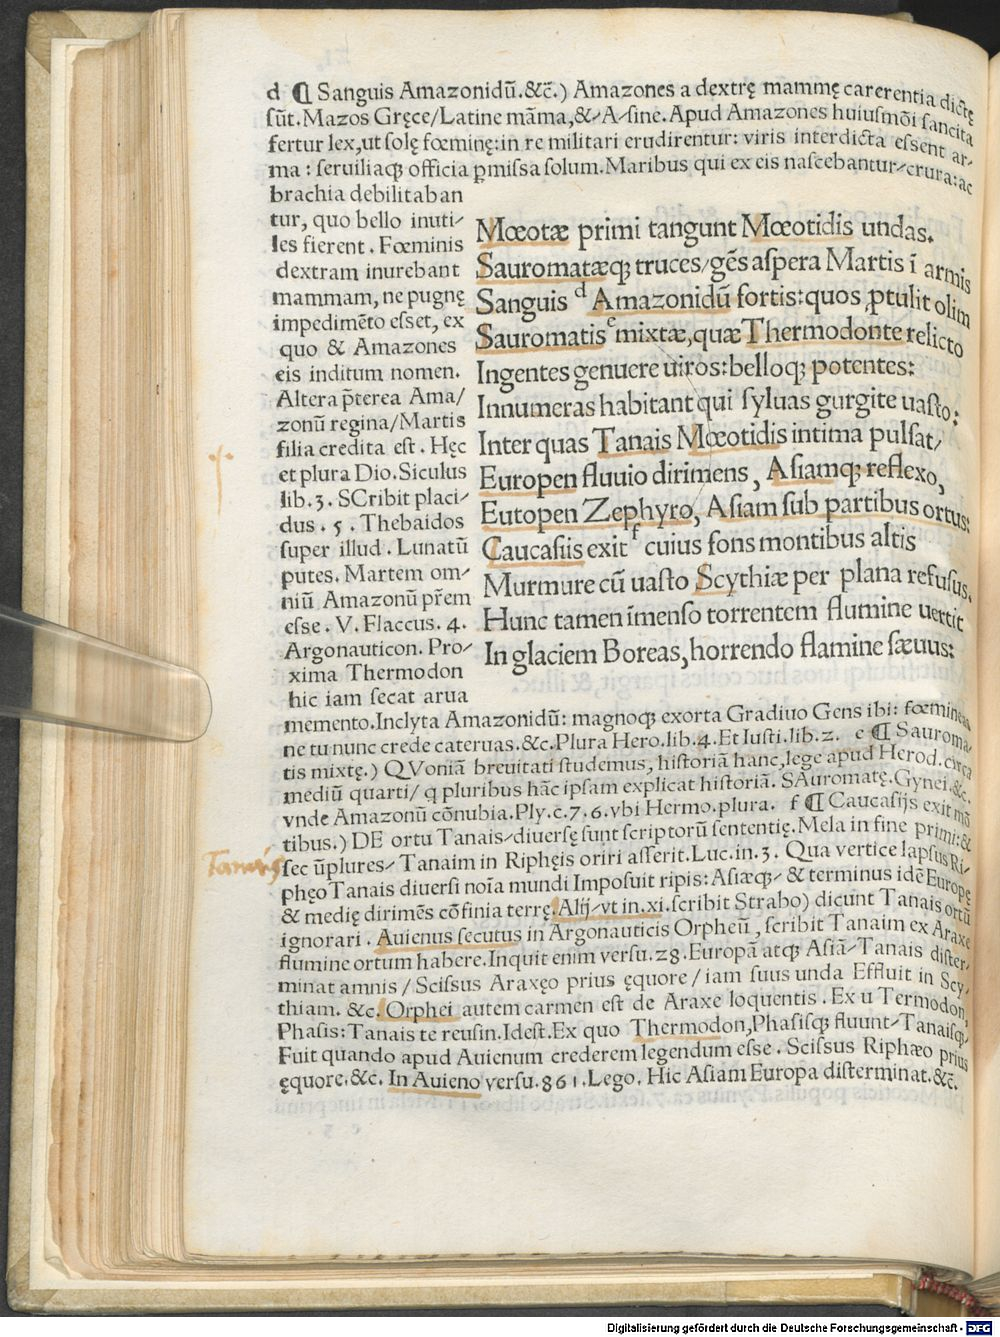 d ¶ Sanguis Amazonidū.&c̄.) Amazones a dextrę mammę carerentia dictę
sūt.Mazos Gręce/Latine māma,&/A/sine.Apud Amazones huiusmōi sancita
fertur lex,ut solę fœminę:in re militari erudirentur: viris interdicta essent ar-
ma : seruiliaqꝫ officia ꝑmissa solum.Maribus qui ex eis nascebantur/crura:ac
brachia debilitaban
tur, quo bello inuti/
les fierent . Fœminis
dextram inurebant
mammam, ne pugnę
impedimēto esset, ex
quo & Amazones
eis inditum nomen.
Altera p̄terea Ama/
zonū regina/Martis
filia credita est . Hęc
et plura Dio.Siculus
lib.3. SCribit placi/
dus . 5 . Thebaidos
super illud . Lunatū
putes. Martem om/
niū Amazonū pr̄em
esse . V. Flaccus. 4.
Argonauticon. Pro/
xima Thermodon
hic iam secat arua
Mœotæ primi tangunt Mœotidis undas.
Sauromatæqꝫ truces/gēs aspera Martis ī armis
Sanguis d Amazonidū fortis:quos ꝓtulit olim
Sauromatis e mixtæ,quæ Thermodonte relicto
Ingentes genuere uiros:belloqꝫ potentes:
Innumeras habitant qui syluas gurgite uasto:
Inter quas Tanais Mœotidis intima pulsat/
Europen fluuio dirimens, Asiamqꝫ reflexo,
Eutopen Zephyro, Asiam sub partibus ortus:
Caucasiis exit f cuius fons montibus altis
Murmure cū uasto Scythiæ per plana refusus.
Hunc tamen īmenso torrentem flumine uertit
In glaciem Boreas,horrendo flamine sæuus:
memento.Inclyta Amazonidū: magnoqꝫ exorta Gradiuo Gens ibi: fœmineas
ne tu nunc crede cateruas.&c.Plura Hero.lib.4.Et Iusti.lib.2. e ¶ Sauroma/
tis mixtę.) QVoniā breuitati studemus, historiā hanc,lege apud Herod.circa
mediū quarti/ q pluribus hāc ipsam explicat historiā. SAuromatę.Gynei.&c.
vnde Amazonū cōnubia.Ply.c.7.6.vbi Hermo.plura. f ¶ Caucasijs exit mō
tibus.) DE ortu Tanais/diuersę sunt scriptorū sententię.Mela in fine primi:&
Tanais
sec ūplures/ Tanaim in Riphęis oriri asserit.Luc.in.3. Qua vertice lapsus Ri/
phęo Tanais diuersi noīa mundi Imposuit ripis: Asiæqꝫ/ & terminus idē Europę
& medię dirimēs cōfinia terrę.Alij/vt in.xi.scribit Strabo) dicunt Tanais ortū
ignorari . Auienus secutus in Argonauticis Orpheū, scribit Tanaim ex Araxe
flumine ortum habere.Inquit enim versu.28.Europā atqꝫ Asiā/Tanais dister/
minat amnis / Scissus Araxęo prius ęquore/iam suus unda Effluit in Scy/
thiam. &c. Orphei autem carmen est de Araxe loquentis . Ex u Termodon,
Phasis:Tanais te reusin.Idest.Ex quo Thermodon,Phasisqꝫ fluunt/Tanaisqꝫ.
Fuit quando apud Auienum crederem legendum esse . Scissus Riphæo prius
ęquore.&c. In Auieno versu.861.Lego. Hic Asiam Europa disterminat.&c̄.
Digitalisierung gefördert durch die Deutsche Forschungsgemeinschaft - DFG